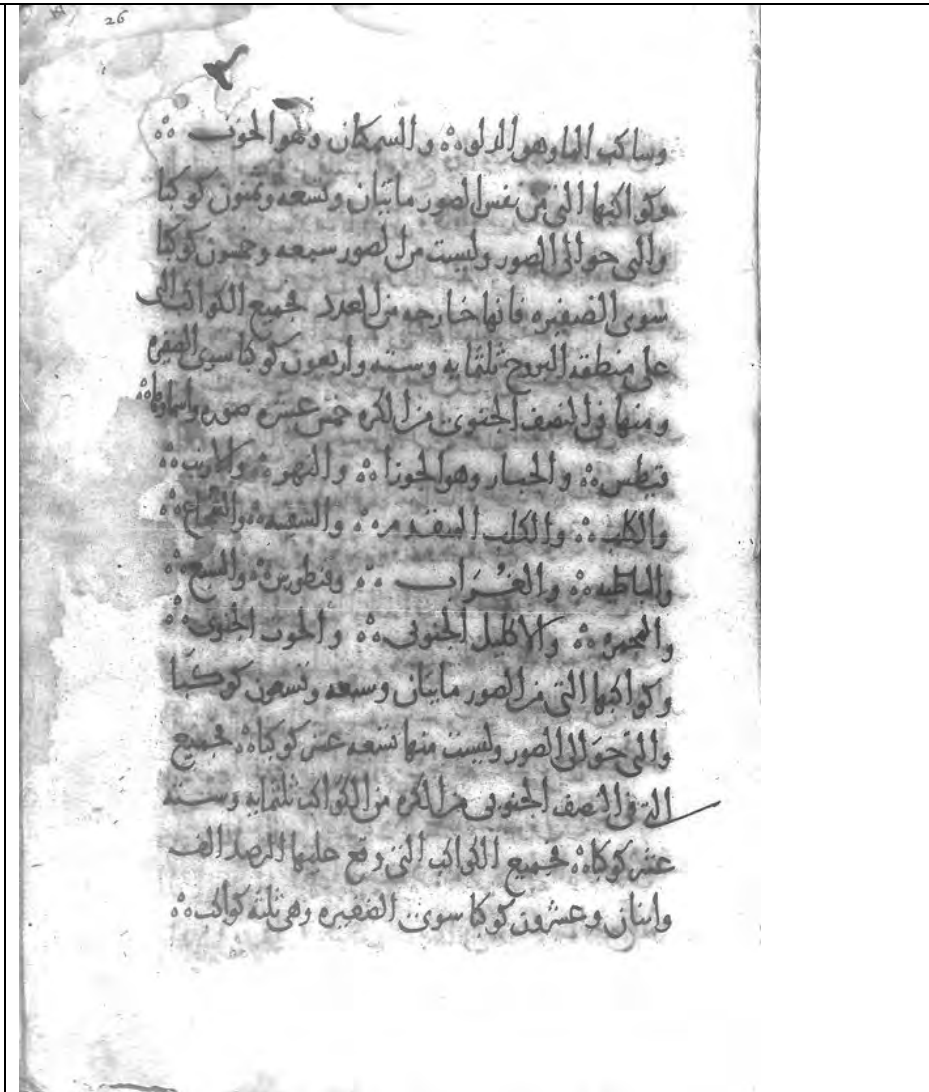 26
وساكب الما وهو الدلو ؞ والسمكتان وهو الحوت ؞
وكواكبها التى من نفس الصور مايتان وتسعه وثمنون كوكبا
والتى حوالى الصور وليست من الصور سبعه وخمسون كوكبا
سوى الضفيره فانها خارجه من العدد فجميع الكواكب التى
على منطقه البروج ثلثمايه وسته واربعون كوكبا سوى الضفيره
ومنها فى النصف الجنوبى من الكره خمس عشره صوره واسماوها ؞
قيطس ؞ والجبار وهو الجوزا ؞ والنهر ؞ والارنب ؞
والكلب ؞ والكلب المتقدم ؞ والسفينه ؞ والشجاع ؞
والباطيه ؞ والغُرَاب ؞ وقنطورس ؞ والسبع ؞
والمجمره ؞ والاكليل الجنوبى ؞ والحوت الجنوبى ؞
وكواكبها التى من الصور مايتان وسبعه وتسعون كوكبا
والتى حوالى الصور وليست منها تسعه عشر كوكبا ؞ فجميع
التى فى النصف الجنوبى من الكره من الكواكب ثلثمايه وسته
عشر كوكبا ؞ فجميع الكواكب التى وقع عليها الرصد الف
واثنان وعشرون كوكبا سوى الضفيره وهى ثلثه كواكب ؞